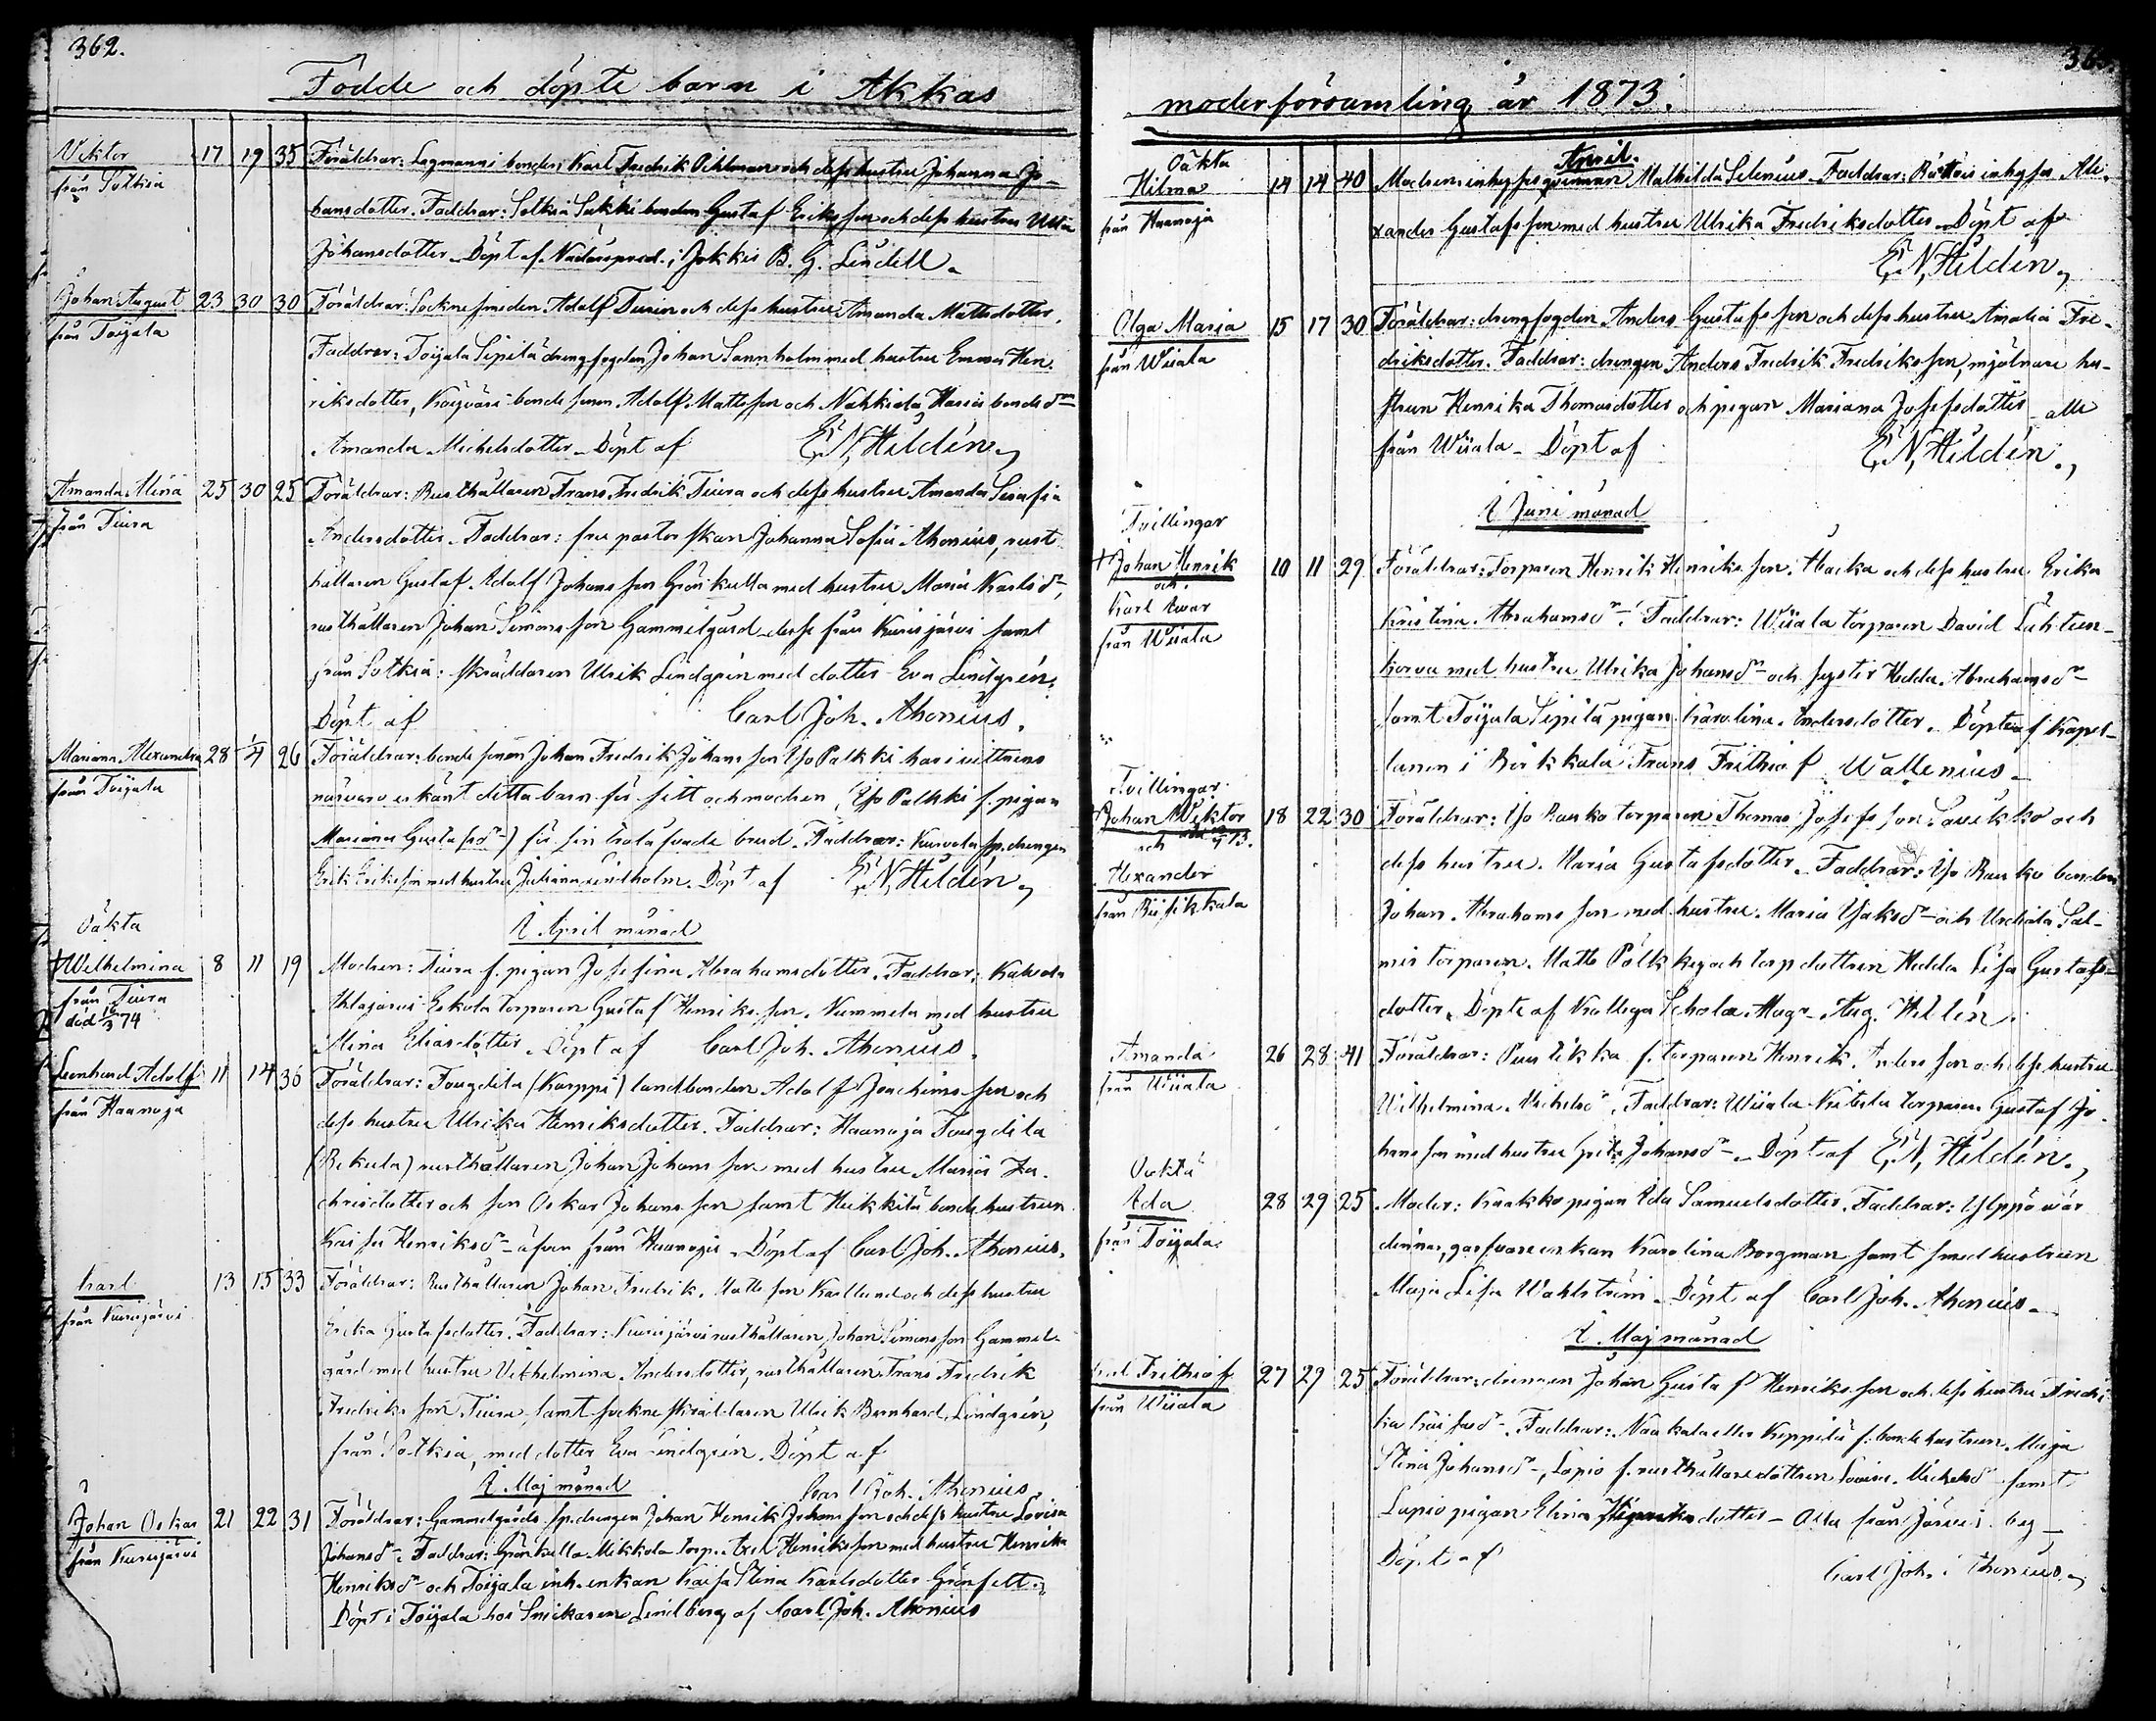 362.
Födde och döpte barn i Akkas
Viktor 17 19 35 Föräldrar: Lagmanni bonden Karl Fredrik Öhlman och dess hustru Johanna Jo-
från Sotkia
hansdotter. Faddrar: Sotkia Sukki bonden Gustaf Eriksson och dess hustru Ulla
Johansdotter. Döpt af Nådårspred. i Jokkis B. G. Lindell.
Johan August 23 30 30 Föräldrar: Socknesmeden Adolf Turin och dess hustru Amanda Mattsdotter,
från Toijala
Faddrar: Toijala Sipilä drengfogden Johan Sannholm med hustru Emma Hen-
riksdotter, bonde sonen Adolf Mattsson och Nahkiala bonded:r
Amanda Michelsdotter. Döpt af E. N. Hildén.
Amanda Alina 25 30 25 Föräldrar: Rusthållaren Frans Fredrik Tiura och dess hustru Amanda Serafia
från Tiura
Andersdotter. Faddrar: fru pastorskan Johanna Sofia Ahonius, rust-
hållaren Gustaf Adolf Johansson Grönkulla med hustru Maria Karlsd:r,
rusthållaren Johan Simonsson Gammelgård desse från Kurisjärvi samt
från Sotkia: skräddaren Ulrik Lindgrén med dotter Eva Lindgrén.
Döpt af Carl Joh. Ahonius.
Mariana Alexandra 28 1/4 26 Föräldrar: bonde sonen Johan Fredrik Johansson Yso Palkki har i vittnens
från Toijala
närvaro erkänt detta barn för sitt och modren (Yso Palkki f. pigan
Mariana Gustafsd:r) för sin trolofvade brud. Faddrar: Kurvola sp. drengen
Erik Eriksson med hustru Juliana Lindholm. Döpt af E. N. Hildén.
I April månad
Oäkta
†Wilhelmina 8 11 19 Modren: Tiura f. pigan Josefina Abrahamsdotter. Faddrar:
från Tiura
död 16/3 74
Eskola torparen Gustaf Henriksson Nummela med hustru
Mina Eliasdotter. Döpt af Carl Joh. Ahonius.
Leonhard Adolf 11 14 36 Föräldrar: Tougdila (Karppi) landbonden Adolf Joachimsson och
från Haanoja
dess hustru Ulrika Henriksdotter. Faddrar: Haanoja Tougdila
(Rekula) rusthållaren Johan Johansson med hustru Maria Za-
chrisdotter och son Oskar Johansson samt Heikkilä bondehustrun
Kaisa Henriksd:r äfven från Haanoja. Döpt af Carl Joh. Ahonius.
Karl 13 15 33 Föräldrar: Rusthållaren Johan Fredrik Mattsson Karllund och dess hustru
från Kurisjärvi
Erika Gustafsdotter. Faddrar: Kurisjärvi rusthållaren Johan Simonsson Gammel-
gård med hustru Vilhelmina Andersdotter, rusthållaren Frans Fredrik
Fredriksson Tiura samt sockneskräddaren Ulrik Bernhard Lindgrén,
från Sotkia, med dotter Eva Lindgrén. Döpt af
I Maj månad Carl Joh. Ahonius
Johan Oskar 21 22 31 Föräldrar: Gammelgårds sp. drengen Johan Henrik Johansson och dess hustru Lovisa
från Kurisjärvi
Johansd:r. Faddrar: Grönkulla Mikkola torp. Axel Henriksson med hustru Henrika
Henriksd:r och Toijala inh. enkan Kaisa Stina Karlsdotter Grönfelt.
Döpt i Toijala hos Snickaren Lindberg af Carl Joh. Ahonius
moderförsamling år 1873.
April.
Oäkta
Hilma 14 14 40 Modren: inhysesqvinnan Mathilda Selenius. Faddrar: inhyses Ale-
från Haanoja
xander Gustafsson med hustru Ulrika Fredriksdotter. Döpt af
E. N. Hildén.
Olga Maria 15 17 30 Föräldrar: drengfogden Anders Gustafsson och dess hustru Amalia Fre-
från Wiiala
driksdotter. Faddrar: drengen Anders Fredrik Fredriksson, mjölnare hu-
strun Henrika Thomasdotter och pigan Mariana Josefsdotter alla
från Wiiala. Döpt af E. N. Hildén.
I Juni månad
Tvillingar
†Johan Henrik 10 11 29 Föräldrar: Torparen Henrik Henriksson Haeka och dess hustru Erika
och
Karl Ivar
från Wiiala
Kristina Abrahamsd:r. Faddrar: Wiiala torparen David Lähteen-
korva med hustru Ulrika Johansd:r och syster Hedda Abrahamsd:r
samt Toijala Sipilä pigan Karolina Andersdotter. Döpte af Kapel-
lanen i Birkkala Frans Frithiof Wallenius.
Tvillingar
†Johan Wiktor 18 22 30 Föräldrar: Yso Rauko torparen Thomas Josefsson Savikko och
och
Alexander
från Riisikkala
dess hustru Maria Gustafsdotter. Faddrar: Yso Rauko bonden
Johan Abrahamsson med hustru Maria Isaksd:r och Urdiala Sal-
mis torparen Matts Pölkky och torpdottren Hedda Lisa Gustafs-
dotter. Döpte af Kollega Scholæ Mag:r Aug. Helén.
Amanda 26 28 41 Föräldrar: f. torparen Henrik Andersson och dess hustru
från Wiiala
Wilhelmina Michelsd:r. Faddrar: Wiiala torparen Gustaf Jo-
hansson med hustru Johansd:r. Döpt af E. N. Hildén.
Oäkta
Ida 28 29 25 Moder: Kaakko pigan Ida Samuelsdotter. Faddrar:
från Toijala
garfvareenkan Karolina Borgman samt smedhustrun
Maja Lisa Wahlström. Döpt af Carl Joh. Ahonius.
I Maj månad
Frithiof 27 29 25 Föräldrar: drengen Johan Gustaf Henriksson och dess hustru Fredri-
från Wiiala
ka Kaisasd:r. Faddrar: Naakala eller Keppilä f. bondehustrun Maja
Stina Johansd:r, Lapio f. rusthållaredottren Lovisa Michelsd:r samt
Lapio pigan Elina Henriksdotter - Alla från Järvis by
Döpt af
Carl Joh. Ahonius.